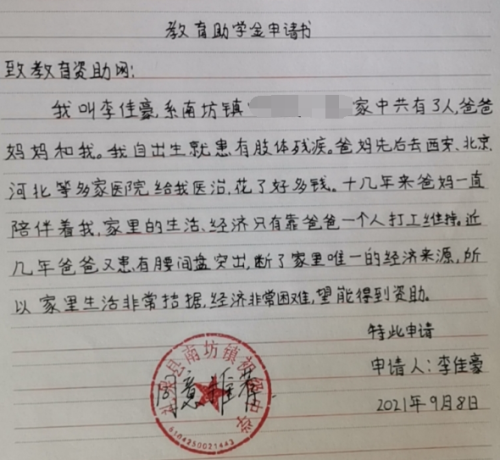 教育助学金申请书
致教育资助网:
我叫李佳豪,系南坊镇 家中共有3人,爸爸
妈妈和我。我自出生就患有肢体残疾。爸妈先后去西安、北京、
河北等多家医院给我医治,花了好多钱。十几年来爸妈一直
陪伴着我,家里的生活、经济只有靠爸爸一个人打工维持。近
几年爸爸又患有腰间盘突出,断了家里唯一的经济来源,所
以家里生活非常拮据,经济非常困难,望能得到资助。
特此申请
申请人:李佳豪
2021年9月8日
同意推荐
县南坊镇